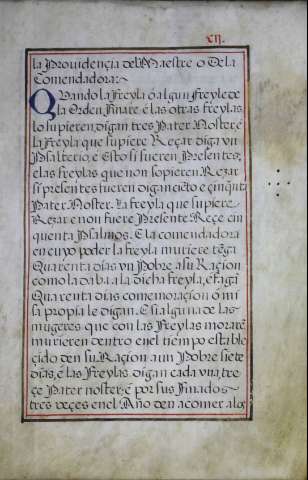 XII.
la Providençia del Maestre o De la
Comendadora:~
QVando la Freyla ó algun Freyle de
la Orden Finare, é las otras freylas
lo supieren, digan tres Pater Noster, é
la Freyla que supiere Reçar diga vn
Psalterio, é Esto si fueren Presentes,
é las freylas que non sopieren Rezar
si presentes fueren digan ciēto e çinqūta
Pater Noster. La freyla que supiere
Rezar e non fuere Presente Reçe cin
quenta Psalmos. E la comendadora
en cuyo poder la freyla muriere tēga
Quarenta dias vn Pobre a su Raçion
como la daba a la dicha freyla, e faga
Quarenta dias comemoraçion ó mi
sa propia le digan. E si alguna de las
mugeres que con las Freylas morarē
murieren dentro en el tiempo estable
çido den su Raçion a un Pobre siete
dias, é las Freylas digan cada vna tre
çe Pater noster, é por sus Finados~
tres veçes en el Año den a comer a los